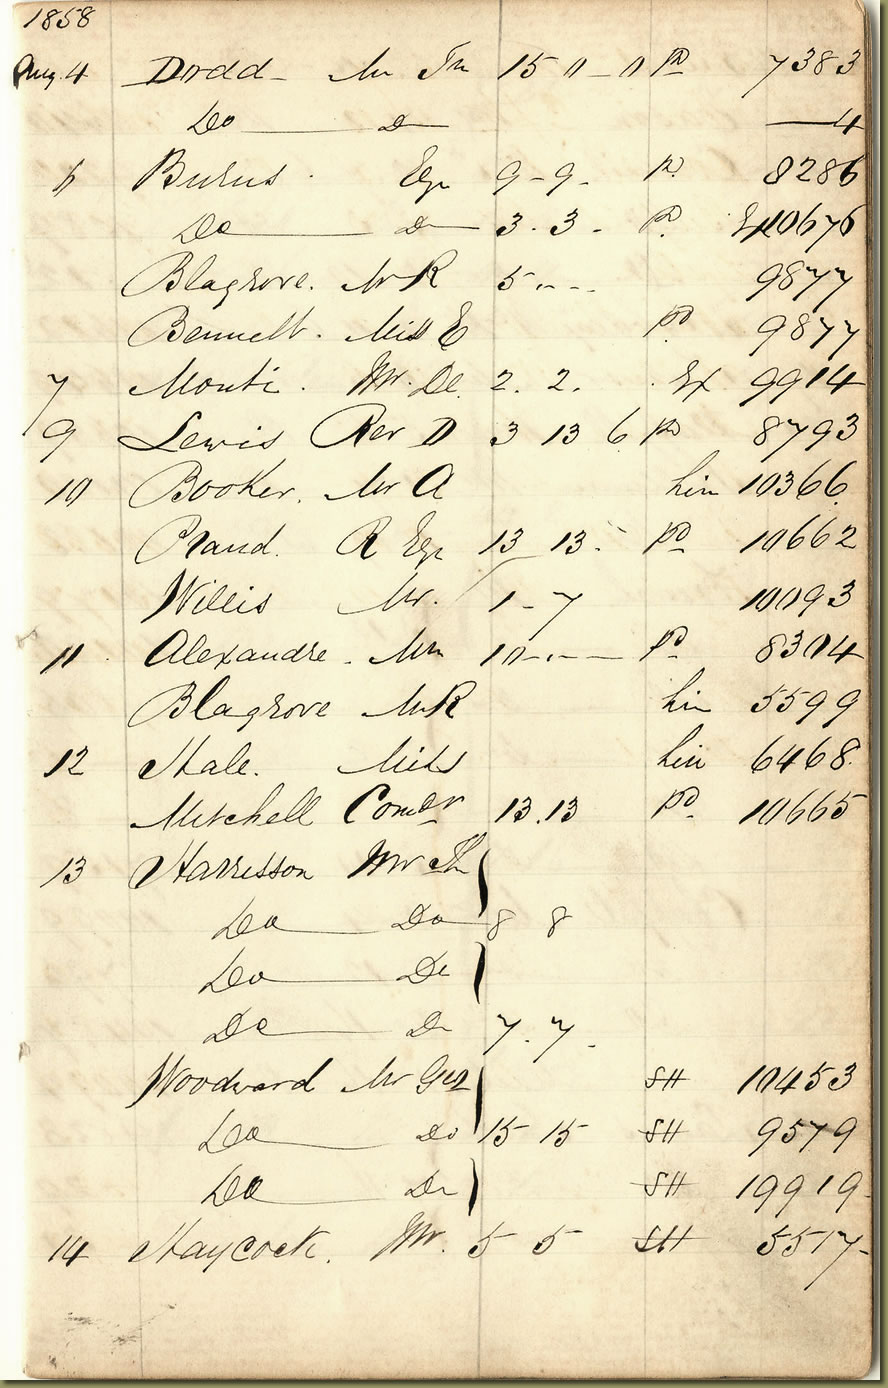 1858
Aug. 4 Dodd - Mr Jn 15 0 - 0 Pd 7383
Do Do 4
6 Burns . Esqr 9 - 9 - Pd 8286
Do Do 3 . 3 - Pd. Ex 10676
Blagrove. Mr R 5 . - - 9877
Bennett . Miss E Pd 9877
7 Monti . Mr. De 2. 2. . Ex 9914
9 Lewis Rev D 3 13 6 Pd 8793
10 Booker. Mr A hin 10366.
Praud. R Esqr 13 13 . Pd 10662
Willis Mr. 1 - 7 10093
11 . Alexandre . Mr 10 - . - Pd. 8304
Blagrove Mr R hin 5599
12 Hale. Miss hin 6468.
Mitchell Comdr 13 . 13 Pd. 10665
13 Harrisson Mr Th
Do Do 8 8
Do Do
Do Do 7 . 7 -
Woodward Mr Geo SH 10453
Do Do 15 15 SH 9579
Do Do SH 19919
14 Haycock. Mr. 5 5 SH 5517-